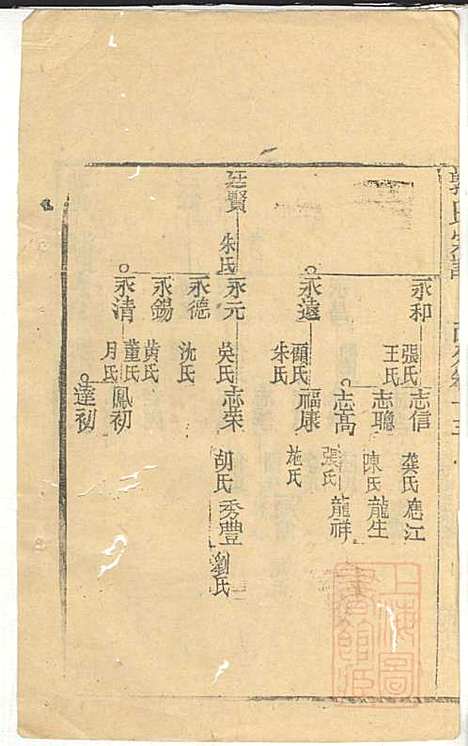 永和
張氏
王氏
志信
龔氏
應江
志聰
陳氏
龍生
志高
張氏
龍祥
永遠
顧氏
朱氏
福康
施氏
廷賢
朱氏
永元
吳氏
志榮
胡氏
秀豊
劉氏
永德
沈氏
永錫
黃氏
永清
董氏
月氏
鳳初
達初
上海圖
書館臧